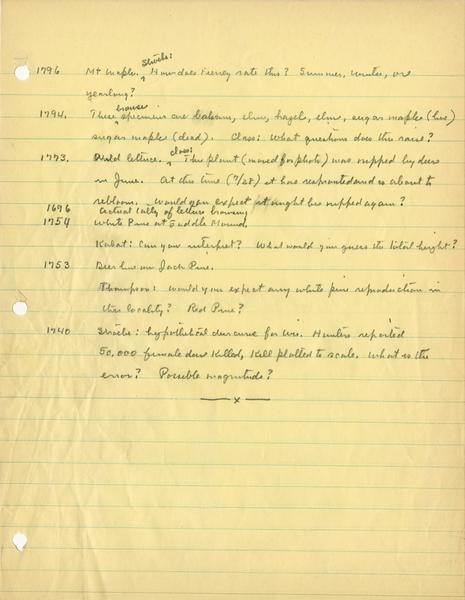 Strebe:
1796 Mt Maple. ^ How does Feeney rate this? Summer, winter, or
yearlong?
browse
1794. These ^ specimens are balsam, elm, hazel, elm, sugar maple (live)
sugar maple (dead). Class: What questions does this raise?
class:
1773. Wild lettuce. ^ This plant (moved for photo) was nipped by deer
in June. At this time (7/28) it has resprouted and is about to
rebloom. Would you expect it might be nipped again?
1696 Actual tally of lettuce browsing
1754 White Pine at Saddle Mound.
Kabat: Can you interpret? What would you guess its total height?
1753 Deer line on Jack Pine.
Thompson: Would you expect any white pine reproduction in
this locality? Red Pine?
1740 Strebe: hypothetical deer curve for Wis. Hunters reported
50,000 female deer killed, Kill plotted to scale. What is the
error? Possible magnitude?
x